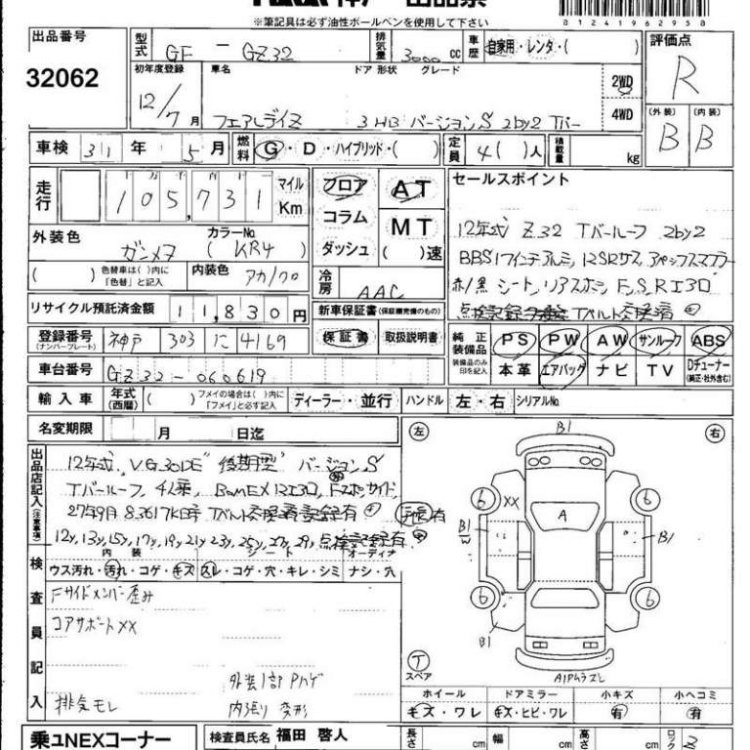 ※筆記具は必ず油性ボールペンを使用して下さい
0124196295 0
出品番号 型式 GF - GZ32 排気量 3000 cc 車歴 自家用・レンタ・( ) 評価点
32062 R
初年度登録 車名 ドア 形状 グレード
12/7月 フェアレディZ 3 HB バージョンS 2by2 Tバー 2WD 4WD
(外装) (内装)
B B
車検 31年 5月 燃料 G・D・ハイブリッド・( ) 定員 4( )人 積載量 kg
走行 105,731 マイル Km
フロア AT
コラム MT
ダッシュ ( )速
セールスポイント
12年式 Z32 Tバールーフ 2by2
BBS17インチアルミ,
赤/黒 シート,リアスポ F,S,RIエアロ
Tベルト交換済
外装色 ガンメタ カラーNo. ( KR4 )
( ) 色替車は( )内に「色替」と記入 内装色 アカ/クロ
冷房 AAC
リサイクル預託済金額 11,830円
新車保証書(保証継承完備のもの)
保証書 取扱説明書
登録番号 (ナンバープレート) 神戸 303 に 4169
純正装備品 装備品のみ印を記入
PS PW AW サンルーフ ABS
本革 エアバッグ ナビ TV Dチューナー(純正・社外含む)
車台番号 GZ32-060619
輸入車 年式(西暦) ( ) フメイの場合は( )内に「フメイ」と必ず記入 ディーラー・並行 ハンドル 左・右 シリアルNo.
名変期限 月 日迄
出品店記入(注意事項)
12年式, VG30DE "後期型" バージョンS
Tバールーフ, 4人乗,
27年9月 8.3617KM時 Tベルト交換済記録有
12y,13y,15y,17y,19y,21y,23y,25y,27y,29y,点検記録有
手帳有
検査員記入
内装 シート オーディオ
ウス汚れ・汚れ・コゲ・キズ スレ・コゲ・穴・キレ・シミ ナシ・穴
Fサイドメンバー歪み
コアサポートXX
外装1部Pハゲ
排気モレ 内張り変形
左 右
B1
6 XX 6
A
B1 B1
6 6
B1
T
スペア
A1Pムラズレ
ホイール ドアミラー 小キズ 小ヘコミ
キズ・ワレ キズ・ヒビ・ワレ 有 有
乗ユNEXコーナー 検査員氏名 福田 啓人 長さ cm 幅 cm 高さ cm